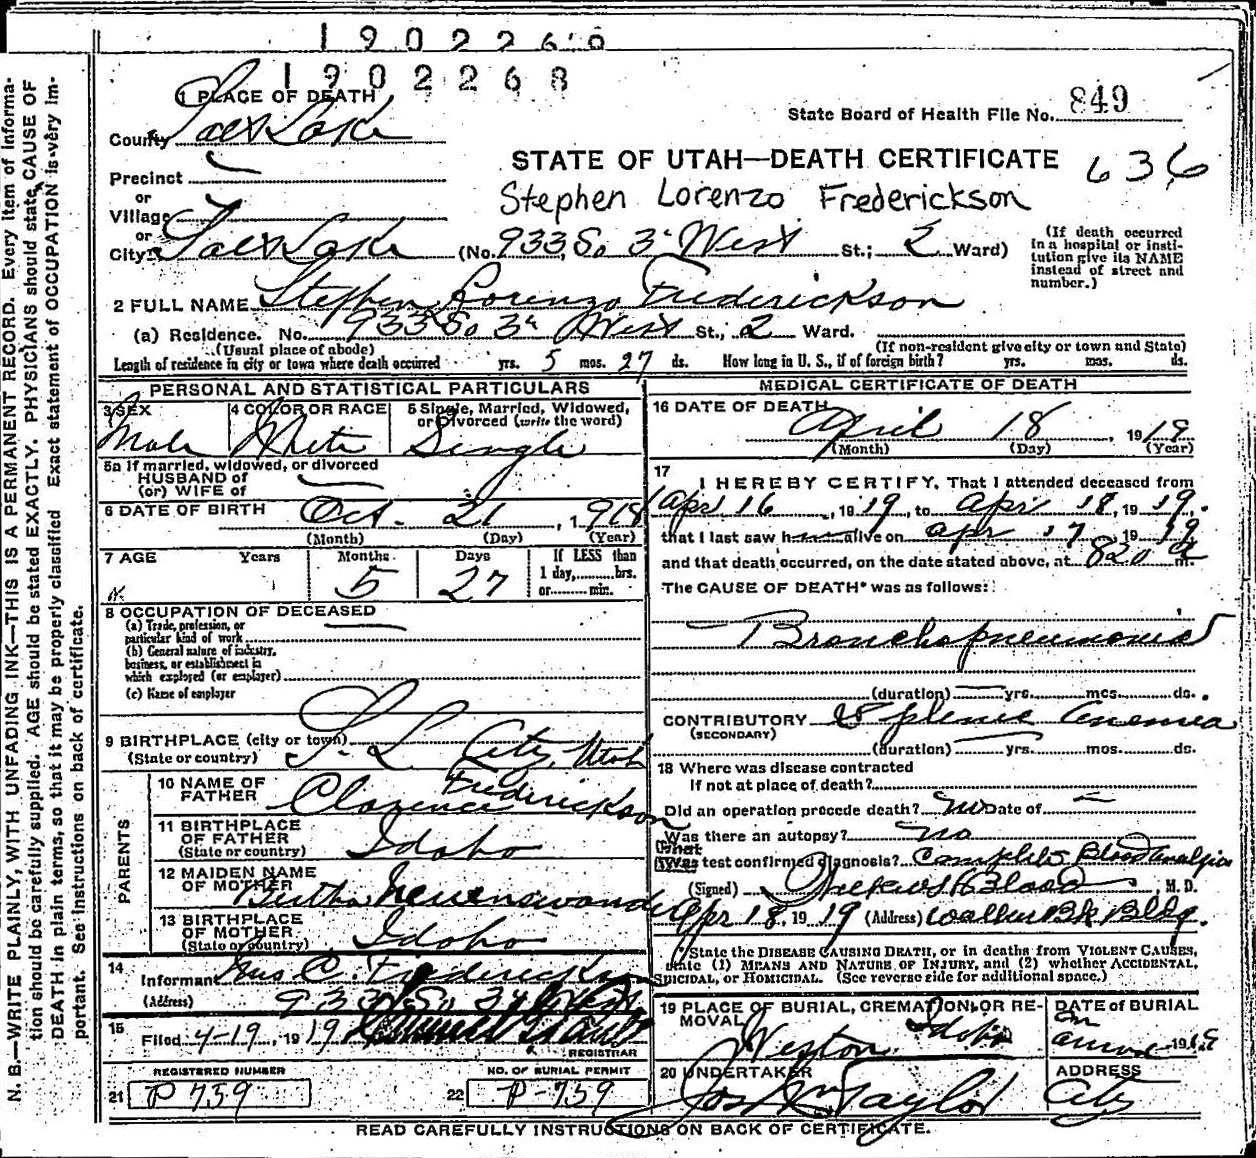 1902268
1902268
1 PLACE OF DEATH
County Salt Lake
State Board of Health File No. 849
STATE OF UTAH—DEATH CERTIFICATE 636
Precinct
or
Village
or
City Salt Lake
Stephen Lorenzo Frederickson
(No. 933 So 3d West St.; 2 Ward)
(If death occurred
in a hospital or insti-
tution give its NAME
instead of street and
number.)
2 FULL NAME Stephen Lorenzo Frederickson
(a) Residence. No. 933 So 3d West St.; 2 Ward.
(Usual place of abode)
(If non-resident give city or town and State)
Length of residence in city or town where death occurred yrs. 5 mos. 27 ds. How long in U. S., if of foreign birth? yrs. mos. ds.
PERSONAL AND STATISTICAL PARTICULARS
3 SEX
Male
4 COLOR OR RACE
White
5 Single, Married, Widowed,
or Divorced (write the word)
Single
5a if married, widowed, or divorced
HUSBAND of
(or) WIFE of
6 DATE OF BIRTH Oct. 21, 1918
(Month) (Day) (Year)
7 AGE Years Months Days
5 27
If LESS than
1 day,........hrs.
or........min.
8 OCCUPATION OF DECEASED
(a) Trade, profession, or
particular kind of work
(b) General nature of industry,
business, or establishment in
which employed (or employer)
(c) Name of employer
9 BIRTHPLACE (city or town) S. L. City, Utah
(State or country)
PARENTS
10 NAME OF
FATHER Clarence Frederickson
11 BIRTHPLACE
OF FATHER Idaho
(State or country)
12 MAIDEN NAME
OF MOTHER Bertha
13 BIRTHPLACE
OF MOTHER Idaho
(State or country)
14
Informant Mrs C. Frederickson
(Address) 933 So 3d West
15
Filed 4-19, 1919
REGISTRAR
REGISTERED NUMBER
21 P 759
NO. OF BURIAL PERMIT
22 P-759
MEDICAL CERTIFICATE OF DEATH
16 DATE OF DEATH
April 18, 1919
(Month) (Day) (Year)
17
I HEREBY CERTIFY, That I attended deceased from
Apr 16, 1919, to Apr 18, 1919.
that I last saw h alive on Apr 17 1919
and that death occurred, on the date stated above, at 820 a m.
The CAUSE OF DEATH* was as follows:
Bronchopneumonia
(duration) yrs. mos. ds.
CONTRIBUTORY Splenic Anemia
(SECONDARY)
(duration) yrs. mos. ds.
18 Where was disease contracted
If not at place of death?
Did an operation precede death? no Date of
Was there an autopsy? no
What
test confirmed diagnosis? Complete Blood analysis
(Signed) M. D.
Apr 18, 1919 (Address) Walker Bk Bldg.
*State the DISEASE CAUSING DEATH, or in deaths from VIOLENT CAUSES,
state (1) MEANS AND NATURE OF INJURY, and (2) whether ACCIDENTAL,
SUICIDAL, or HOMICIDAL. (See reverse side for additional space.)
19 PLACE OF BURIAL, CREMATION, OR RE-
MOVAL
Weston Idaho
DATE of BURIAL
on
arrival 1919
20 UNDERTAKER
Jos Wm Taylor
ADDRESS
City
READ CAREFULLY INSTRUCTIONS ON BACK OF CERTIFICATE.
N. B.—WRITE PLAINLY, WITH UNFADING INK—THIS IS A PERMANENT RECORD. Every item of informa-
tion should be carefully supplied. AGE should be stated EXACTLY. PHYSICIANS should state CAUSE OF
DEATH in plain terms, so that it may be properly classified. Exact statement of OCCUPATION is very im-
portant. See instructions on back of certificate.